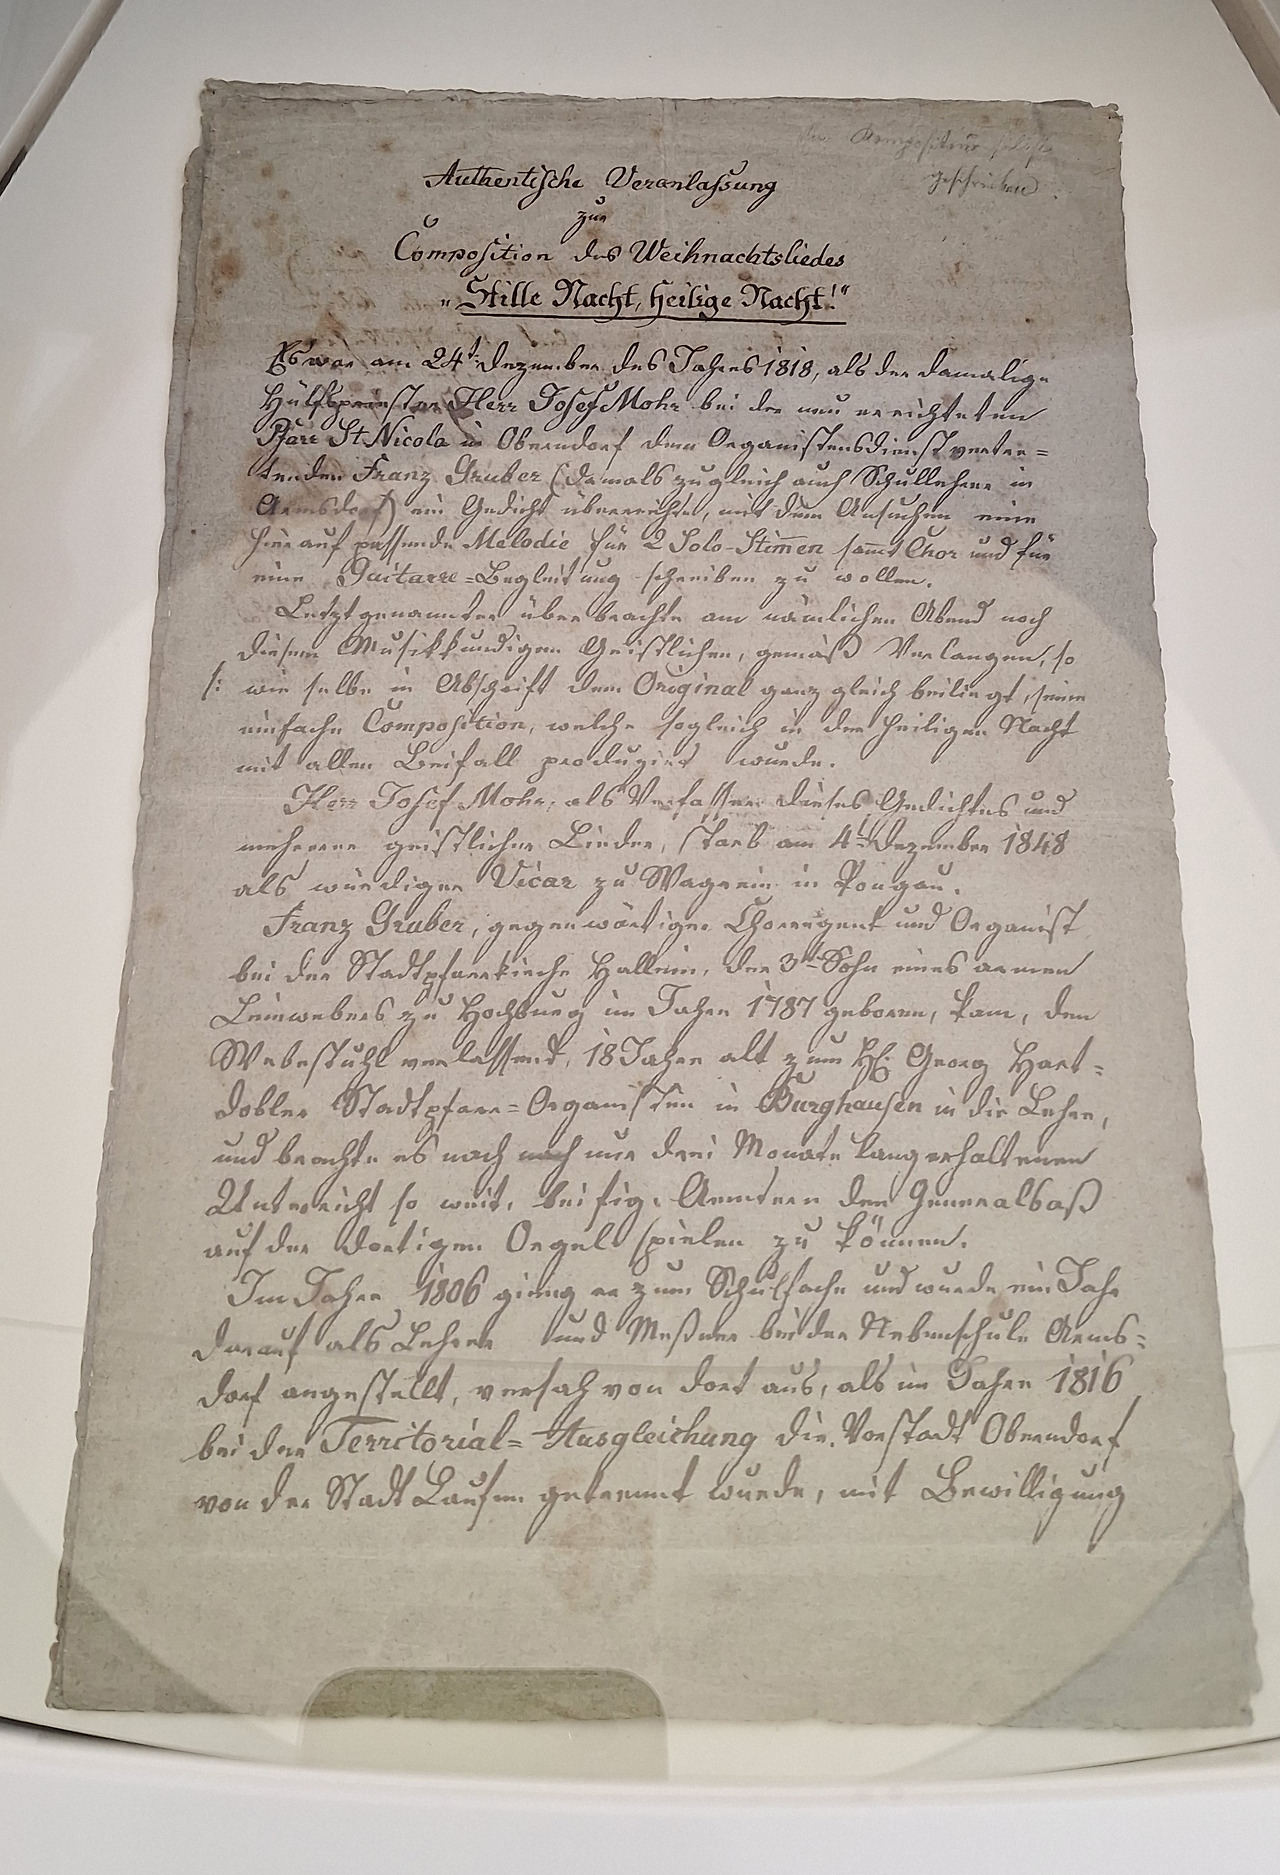 Komposituer selbst
geschrieben.
Authentische Veranlassung
zur
Composition des Weihnachtsliedes
„Stille Nacht, heilige Nacht!“
Es war am 24t. Dezember des Jahres 1818, als der damalige
Hülfspriester Herr Josef Mohr bei der neu errichteten
Pfarr St Nicola in Oberndorf dem Organistensdienst vertre=
tenden Franz Gruber (damals zugleich auch Schullehrer in
Arnsdorf) ein Gedicht überreichte, mit dem Ansuchen eine
hierauf passende Melodie für 2 Solo-Stimmen sammt Chor und für
eine Guitarre=Begleitung schreiben zu wollen.
Letztgenannter überbrachte am nämlichen Abend noch
diesem Musikkundigen Geistlichen, gemäß Verlangen, so
/: wie selbe in Abschrift dem Original ganz gleich beiliegt, seine
einfache Composition, welche sogleich in der heiligen Nacht
mit allen Beifall produzirt wurde.
Herr Josef Mohr, als Verfasser dieses Gedichtes und
mehrerer geistlicher Lieder, starb am 4t. Dezember 1848
als würdiger Vicar zu Wagrein in Pongau.
Franz Gruber, gegenwärtiger Chorregent und Organist
bei der Stadtpfarrkirche Hallein, der 3t Sohn eines armen
Leinwebers zu Hochburg im Jahre 1787 geboren, kam, den
Webestuhl verlassend, 18 Jahre alt zum H: Georg Hart=
dobler Stadtpfarr=Organisten in Burghausen in die Lehre,
und brachte es nach noch nur drei Monate lang erhaltenen
Unterricht so weit, bei fig. Aemtern den Generalbaß
auf der dortigen Orgel spielen zu können.
Im Jahre 1806 gieng er zum Schulfache und wurde ein Jahr
darauf als Lehrer und Meßner bei der Nebenschule Arns=
dorf angestellt, versah von dort aus, als im Jahre 1816
bei der Territorial=Ausgleichung die Vorstadt Oberndorf
von der Stadt Laufen getrennt wurde, mit Bewilligung